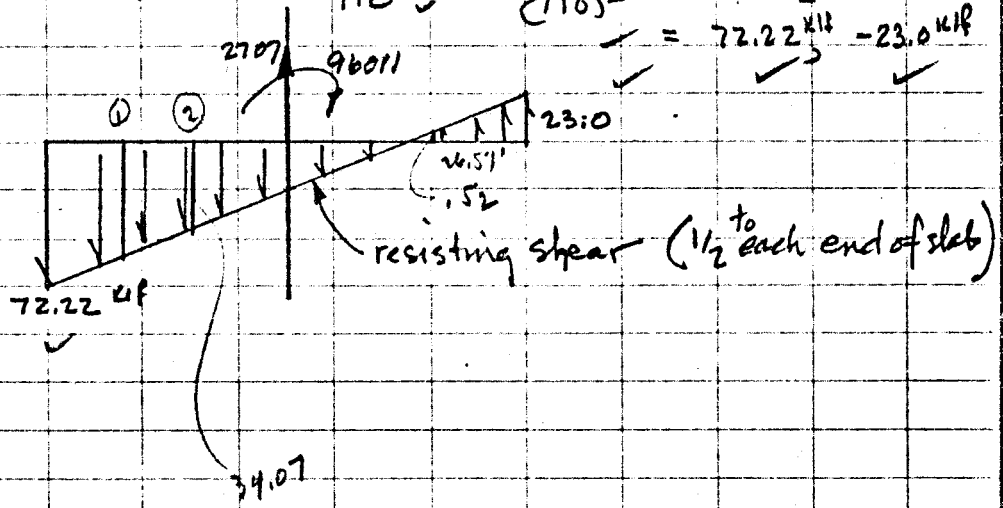 (110)²
✓ = 72.22 klf, -23.0 klf
2707 96011
① ② 23.0
26.57'
.52
resisting shear (1/2 to each end of slab)
72.22 klf
34.07